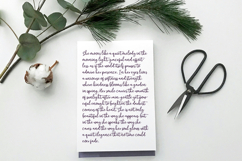 she moves like a quiet melody in the
morning light, graceful and effort-
less as if the world itself pauses to
admire her presence. In her eyes lives
a universe of softness and strength,
where kindness blooms like a garden
in spring. Her smile carries the warmth
of sunlight after rain, gentle yet pow-
erful enough to brighten the darkest
corners of the heart. She is not only
beautiful in the way she appears, but
in the way she speaks, the way she
cares and the way her soul glows with
a quiet elegance that no time could
ever fade.